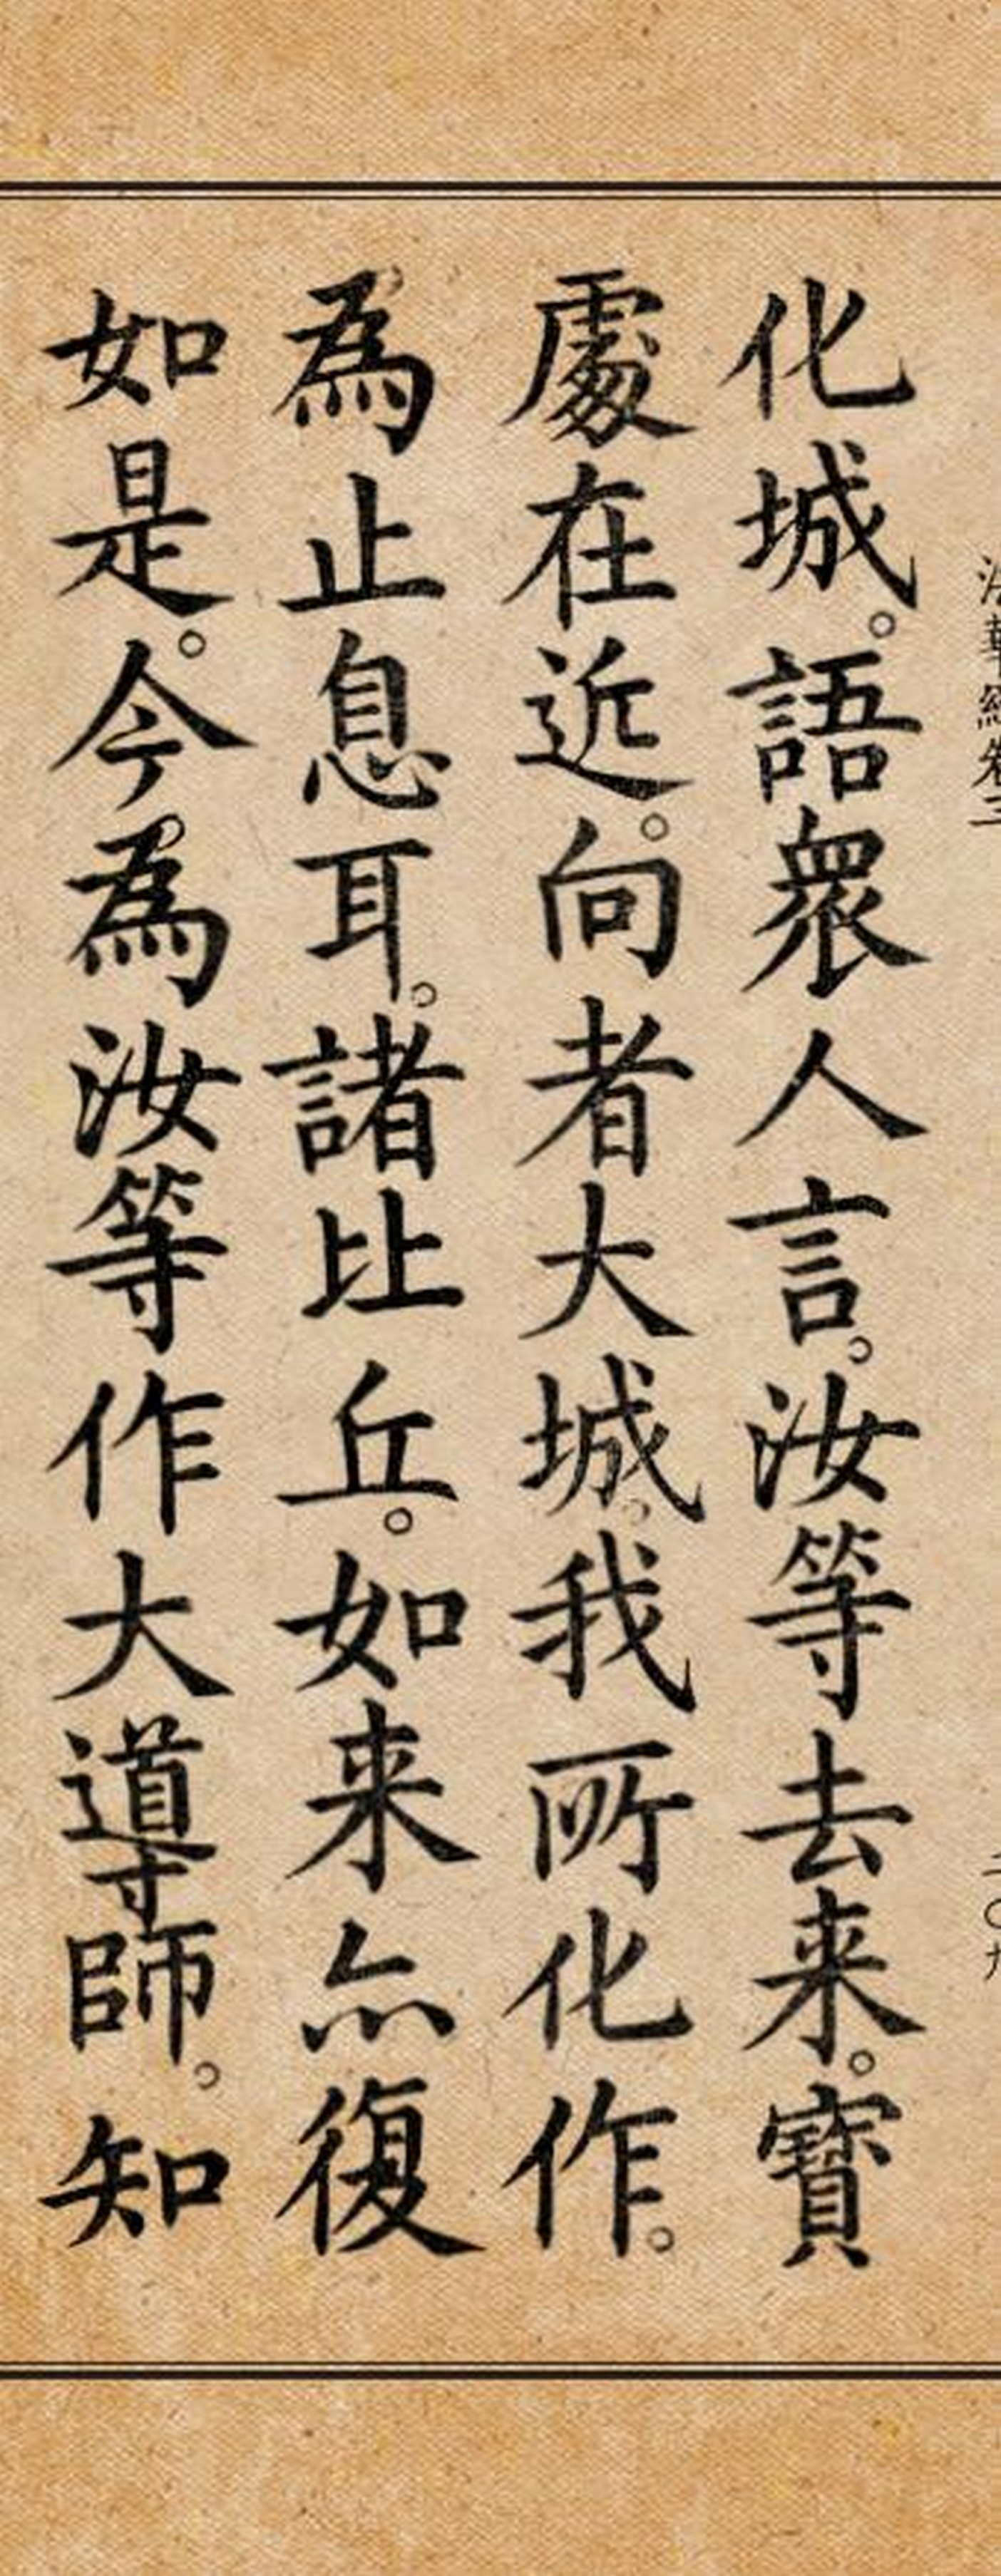 法華經卷三 二〇九
化城。語衆人言。汝等去来。寶
處在近。向者大城。我所化作。
為止息耳。諸比丘。如来亦復
如是。今為汝等作大導師。知